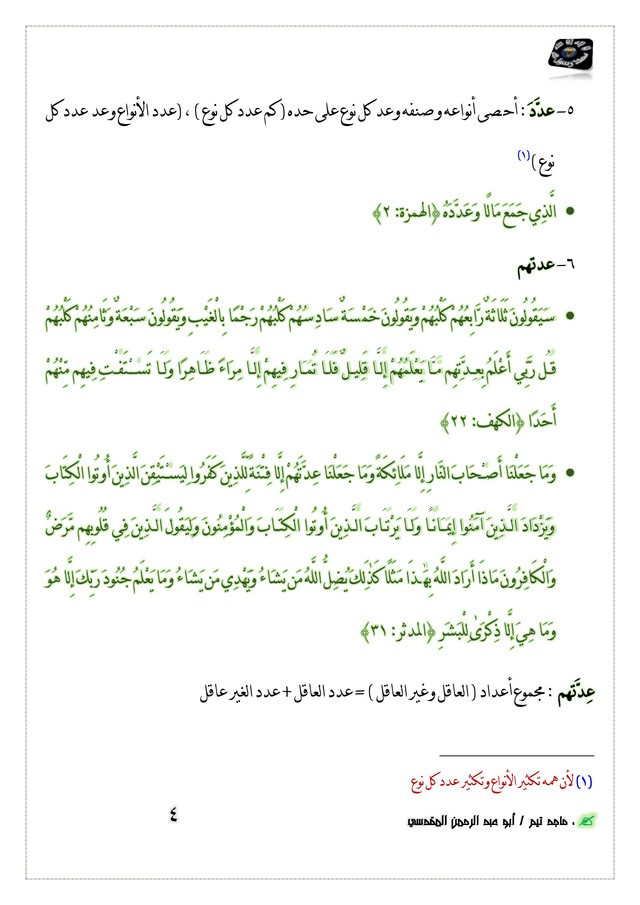 ٥- عدَّدَ : أحصى أنواعه وصنفه وعد كل نوع على حده (كم عدد كل نوع ) ، (عدد الأنواع وعد عدد كل
نوع )(١)
• الَّذِي جَمَعَ مَالًا وَعَدَّدَهُ ﴿الهمزة: ٢﴾
٦- عدتهم
• سَيَقُولُونَ ثَلَاثَةٌ رَّابِعُهُمْ كَلْبُهُمْ وَيَقُولُونَ خَمْسَةٌ سَادِسُهُمْ كَلْبُهُمْ رَجْمًا بِالْغَيْبِ وَيَقُولُونَ سَبْعَةٌ وَثَامِنُهُمْ كَلْبُهُمْ
قُل رَّبِّي أَعْلَمُ بِعِدَّتِهِم مَّا يَعْلَمُهُمْ إِلَّا قَلِيلٌ فَلَا تُمَارِ فِيهِمْ إِلَّا مِرَاءً ظَاهِرًا وَلَا تَسْتَفْتِ فِيهِم مِّنْهُمْ
أَحَدًا ﴿الكهف: ٢٢﴾
• وَمَا جَعَلْنَا أَصْحَابَ النَّارِ إِلَّا مَلَائِكَةً وَمَا جَعَلْنَا عِدَّتَهُمْ إِلَّا فِتْنَةً لِّلَّذِينَ كَفَرُوا لِيَسْتَيْقِنَ الَّذِينَ أُوتُوا الْكِتَابَ
وَيَزْدَادَ الَّذِينَ آمَنُوا إِيمَانًا وَلَا يَرْتَابَ الَّذِينَ أُوتُوا الْكِتَابَ وَالْمُؤْمِنُونَ وَلِيَقُولَ الَّذِينَ فِي قُلُوبِهِم مَّرَضٌ
وَالْكَافِرُونَ مَاذَا أَرَادَ اللَّهُ بِهَٰذَا مَثَلًا كَذَٰلِكَ يُضِلُّ اللَّهُ مَن يَشَاءُ وَيَهْدِي مَن يَشَاءُ وَمَا يَعْلَمُ جُنُودَ رَبِّكَ إِلَّا هُوَ
وَمَا هِيَ إِلَّا ذِكْرَىٰ لِلْبَشَرِ ﴿المدثر: ٣١﴾
عِدَّتهم : مجموع أعداد ( العاقل وغير العاقل ) = عدد العاقل + عدد الغير عاقل
(١) لأن همه تكثير الأنواع وتكثير عدد كل نوع
م . ماجد تيم / أبو عبد الرحمن المقدسي
٤